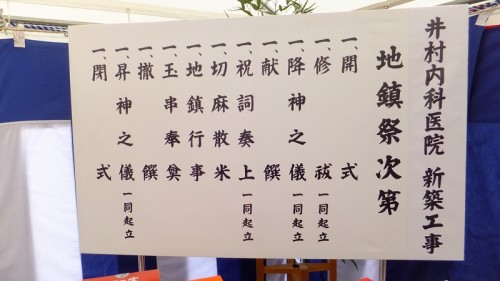 井村内科医院 新築工事
地鎮祭次第
一、開式
一、修祓 一同起立
一、降神之儀 一同起立
一、献饌
一、祝詞奏上 一同起立
一、切麻散米
一、地鎮行事
一、玉串奉奠
一、撤饌
一、昇神之儀 一同起立
一、閉式